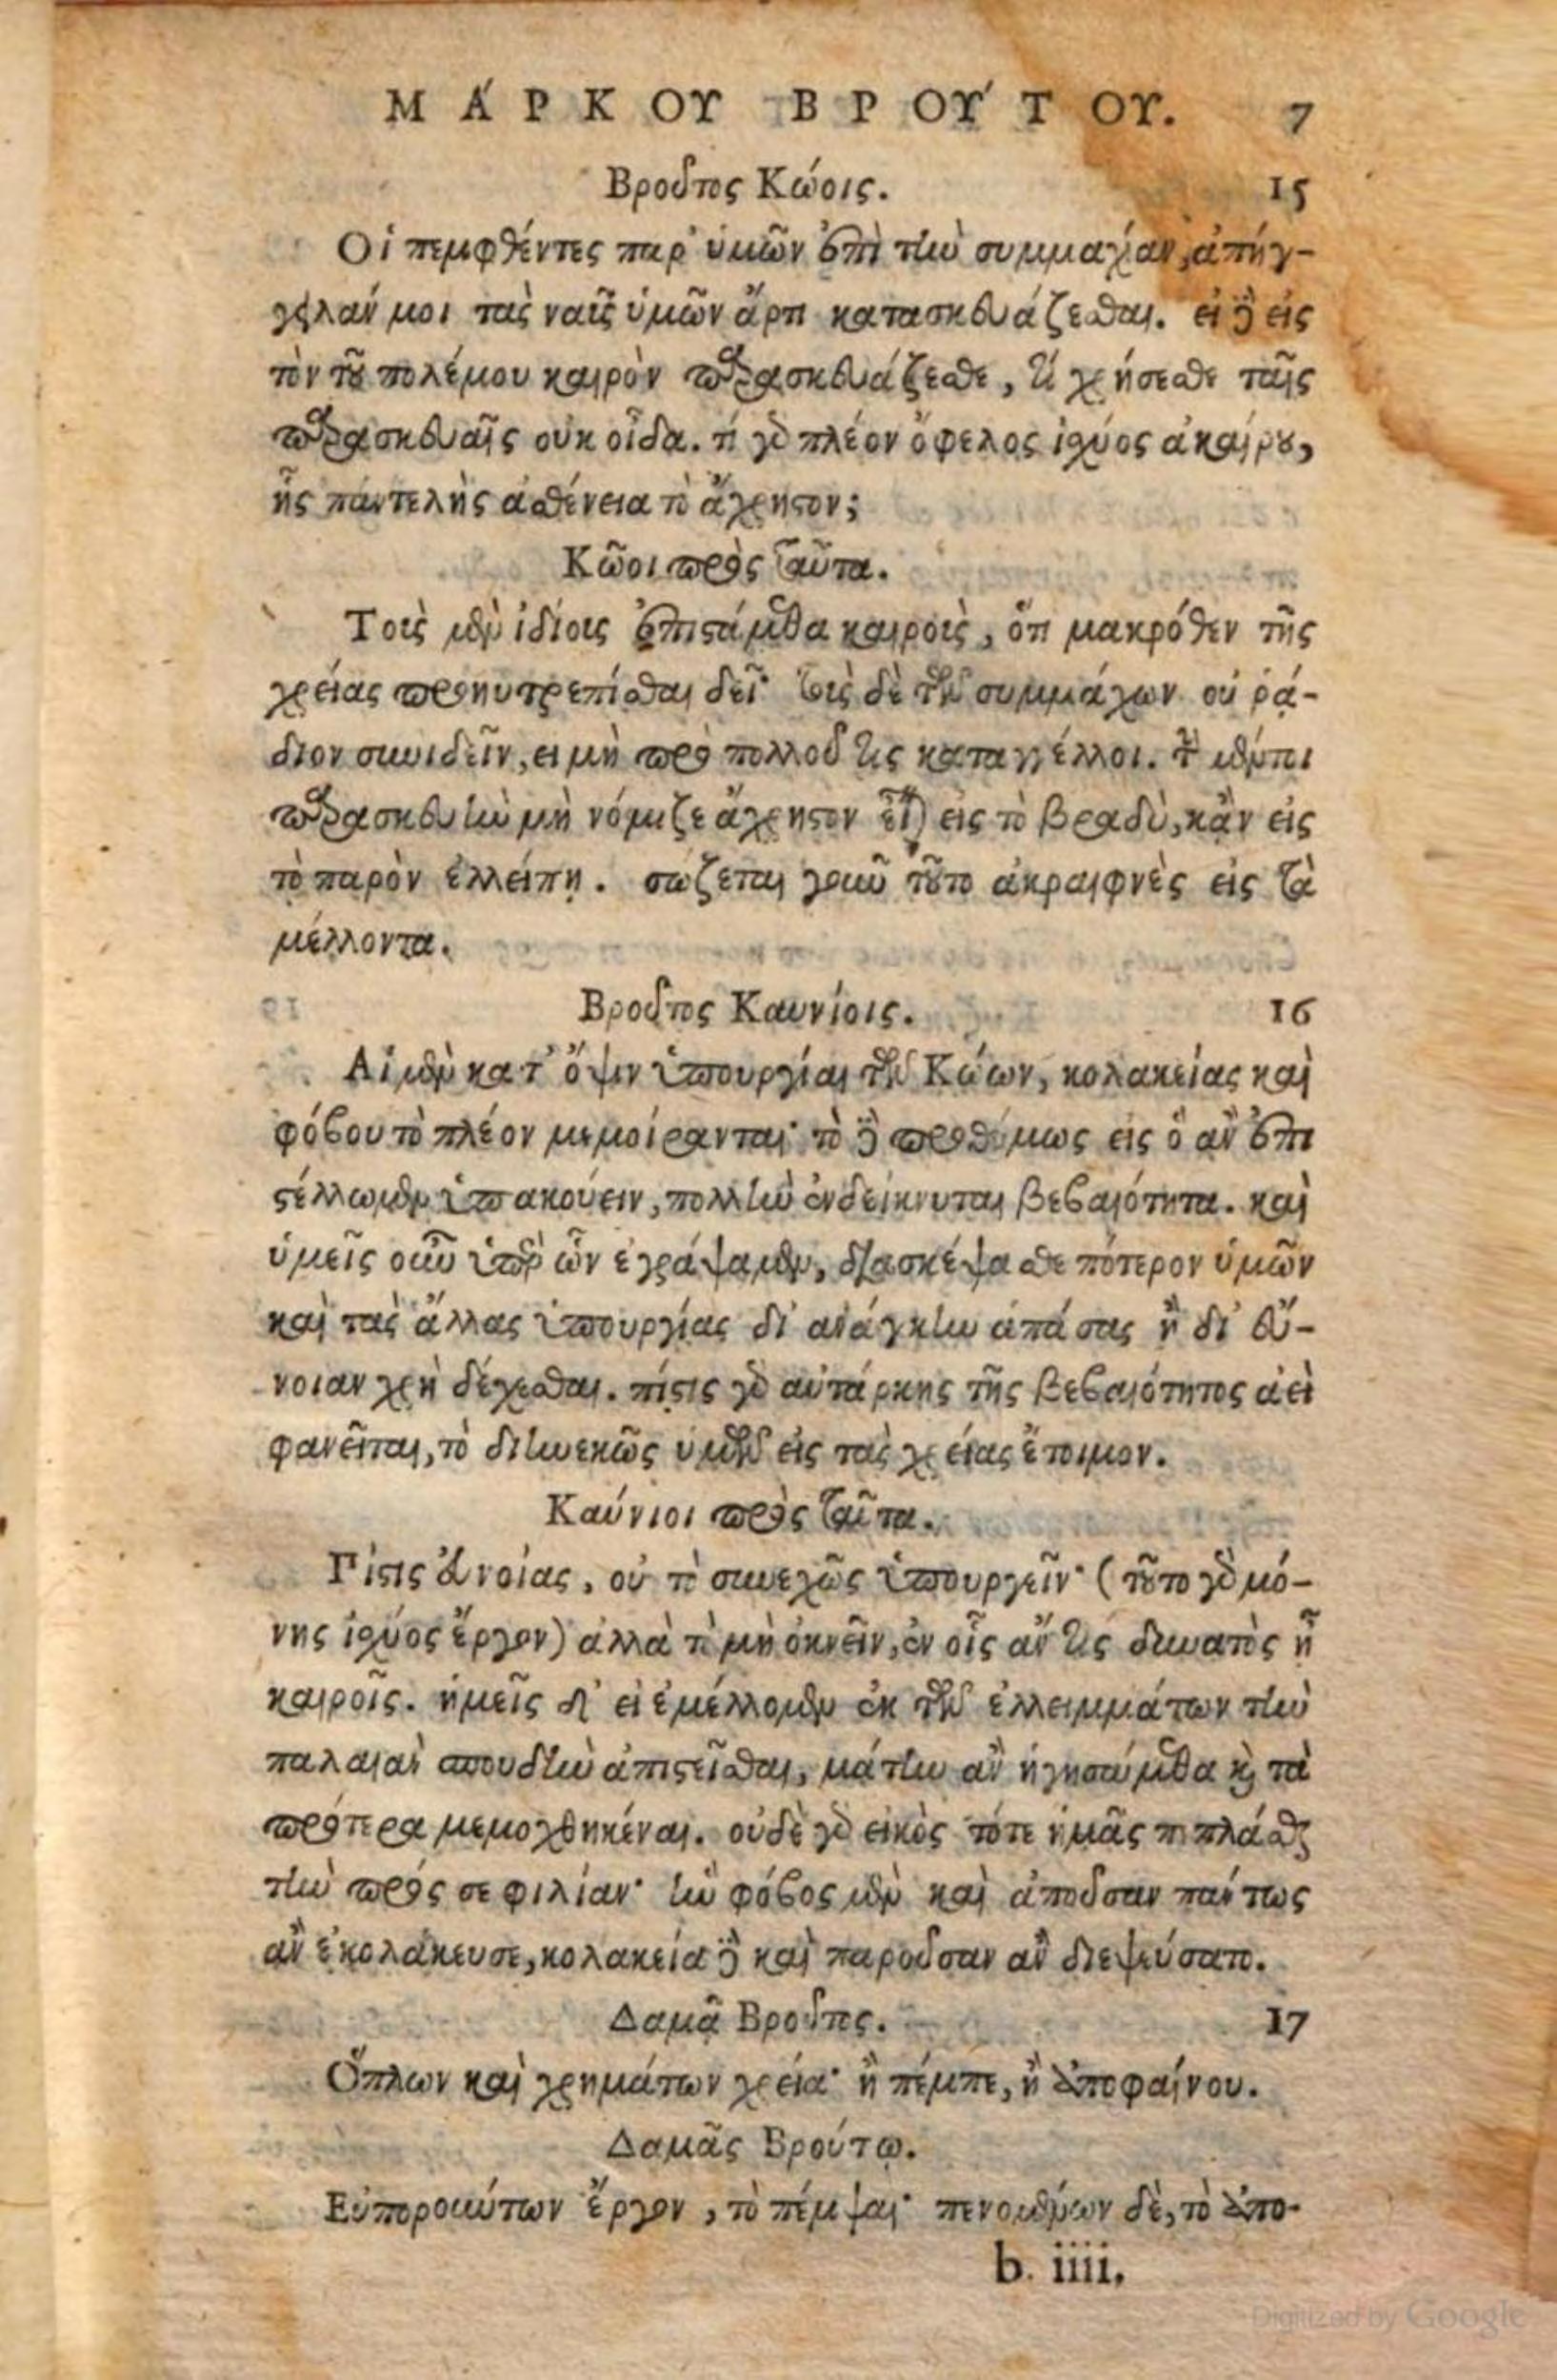 ΜΆΡΚΟΥ ΒΡΟΎΤΟΥ. 7
Βροῦτος Κώοις. 15
Οἱ πεμφθέντες παρ' ὑμῶν ἐπὶ τὴν συμμαχίαν, ἀπήγ-
γειλάν μοι τὰς ναῦς ὑμῶν ἄρτι κατασκευάζεσθαι. εἰ δὲ εἰς
τὸν τοῦ πολέμου καιρὸν παρασκευάζεσθε, τί χρήσεσθε ταῖς
παρασκευαῖς οὐκ οἶδα. τί γὰρ πλέον ὄφελος ἰσχύος ἀκαίρου,
ἧς παντελὴς ἀσθένεια τὸ ἄχρηστον;
Κῶοι πρὸς ταῦτα.
Τοῖς μὲν ἰδίοις ἐπιστάμεθα καιροῖς, ὅτι μακρόθεν τῆς
χρείας προηυτρεπίσθαι δεῖ· τοῖς δὲ τῶν συμμάχων οὐ ῥᾴ-
διον συνιδεῖν, εἰ μὴ πρὸ πολλοῦ τις καταγγέλλοι. τὴν μέντοι
παρασκευὴν μὴ νόμιζε ἄχρηστον εἶναι εἰς τὸ βραδὺ, κἂν εἰς
τὸ παρὸν ἐλλείπῃ. σώζεται γοῦν τοῦτο ἀκραιφνὲς εἰς τὰ
μέλλοντα.
Βροῦτος Καυνίοις. 16
Αἱ μὲν κατ' ὄψιν ὑπουργίαι τῶν Κώων, κολακείας καὶ
φόβου τὸ πλέον μεμοίρανται· τὸ δὲ προθύμως εἰς ὃ ἂν ἐπι
στέλλωμεν ὑπακούειν, πολλὴν ἐνδείκνυται βεβαιότητα. καὶ
ὑμεῖς οὖν ὑπὲρ ὧν ἐγράψαμεν, διασκέψασθε πότερον ὑμῶν
καὶ τὰς ἄλλας ὑπουργίας δι' ἀνάγκην ἁπάσας ἢ δι' εὔ-
νοιαν χρὴ δέχεσθαι. πίστις γὰρ αὐτάρκης τῆς βεβαιότητος ἀεὶ
φανεῖται, τὸ διηνεκῶς ὑμῶν εἰς τὰς χρείας ἕτοιμον.
Καύνιοι πρὸς ταῦτα.
Πίστις εὐνοίας, οὐ τὸ συνεχῶς ὑπουργεῖν· (τοῦτο γὰρ μό-
νης ἰσχύος ἔργον) ἀλλὰ τὸ μὴ ὀκνεῖν, ἐν οἷς ἄν τις δυνατὸς ᾖ
καιροῖς. ἡμεῖς δ' εἰ ἐμέλλομεν ἐκ τῶν ἐλλειμμάτων τὴν
παλαιὰν σπουδὴν ἀπιστεῖσθαι, μάτην ἂν ἡγησάμεθα καὶ τὰ
πρότερα μεμοχθηκέναι. οὐδὲ γὰρ εἰκὸς τότε ἡμᾶς πεπλάσθαι
τὴν πρός σε φιλίαν· ἣν φόβος μὲν καὶ ἀποῦσαν πάντως
ἂν ἐκολάκευσε, κολακεία δὲ καὶ παροῦσαν ἂν διεψεύσατο.
Δαμᾷ Βροῦτος. 17
Ὅπλων καὶ χρημάτων χρεία· ἢ πέμπε, ἢ ἀποφαίνου.
Δαμᾶς Βρούτῳ.
Εὐπορούντων ἔργον, τὸ πέμψαι· πενομένων δὲ, τὸ ἀπο-
b. iiii.
Digitized by Google